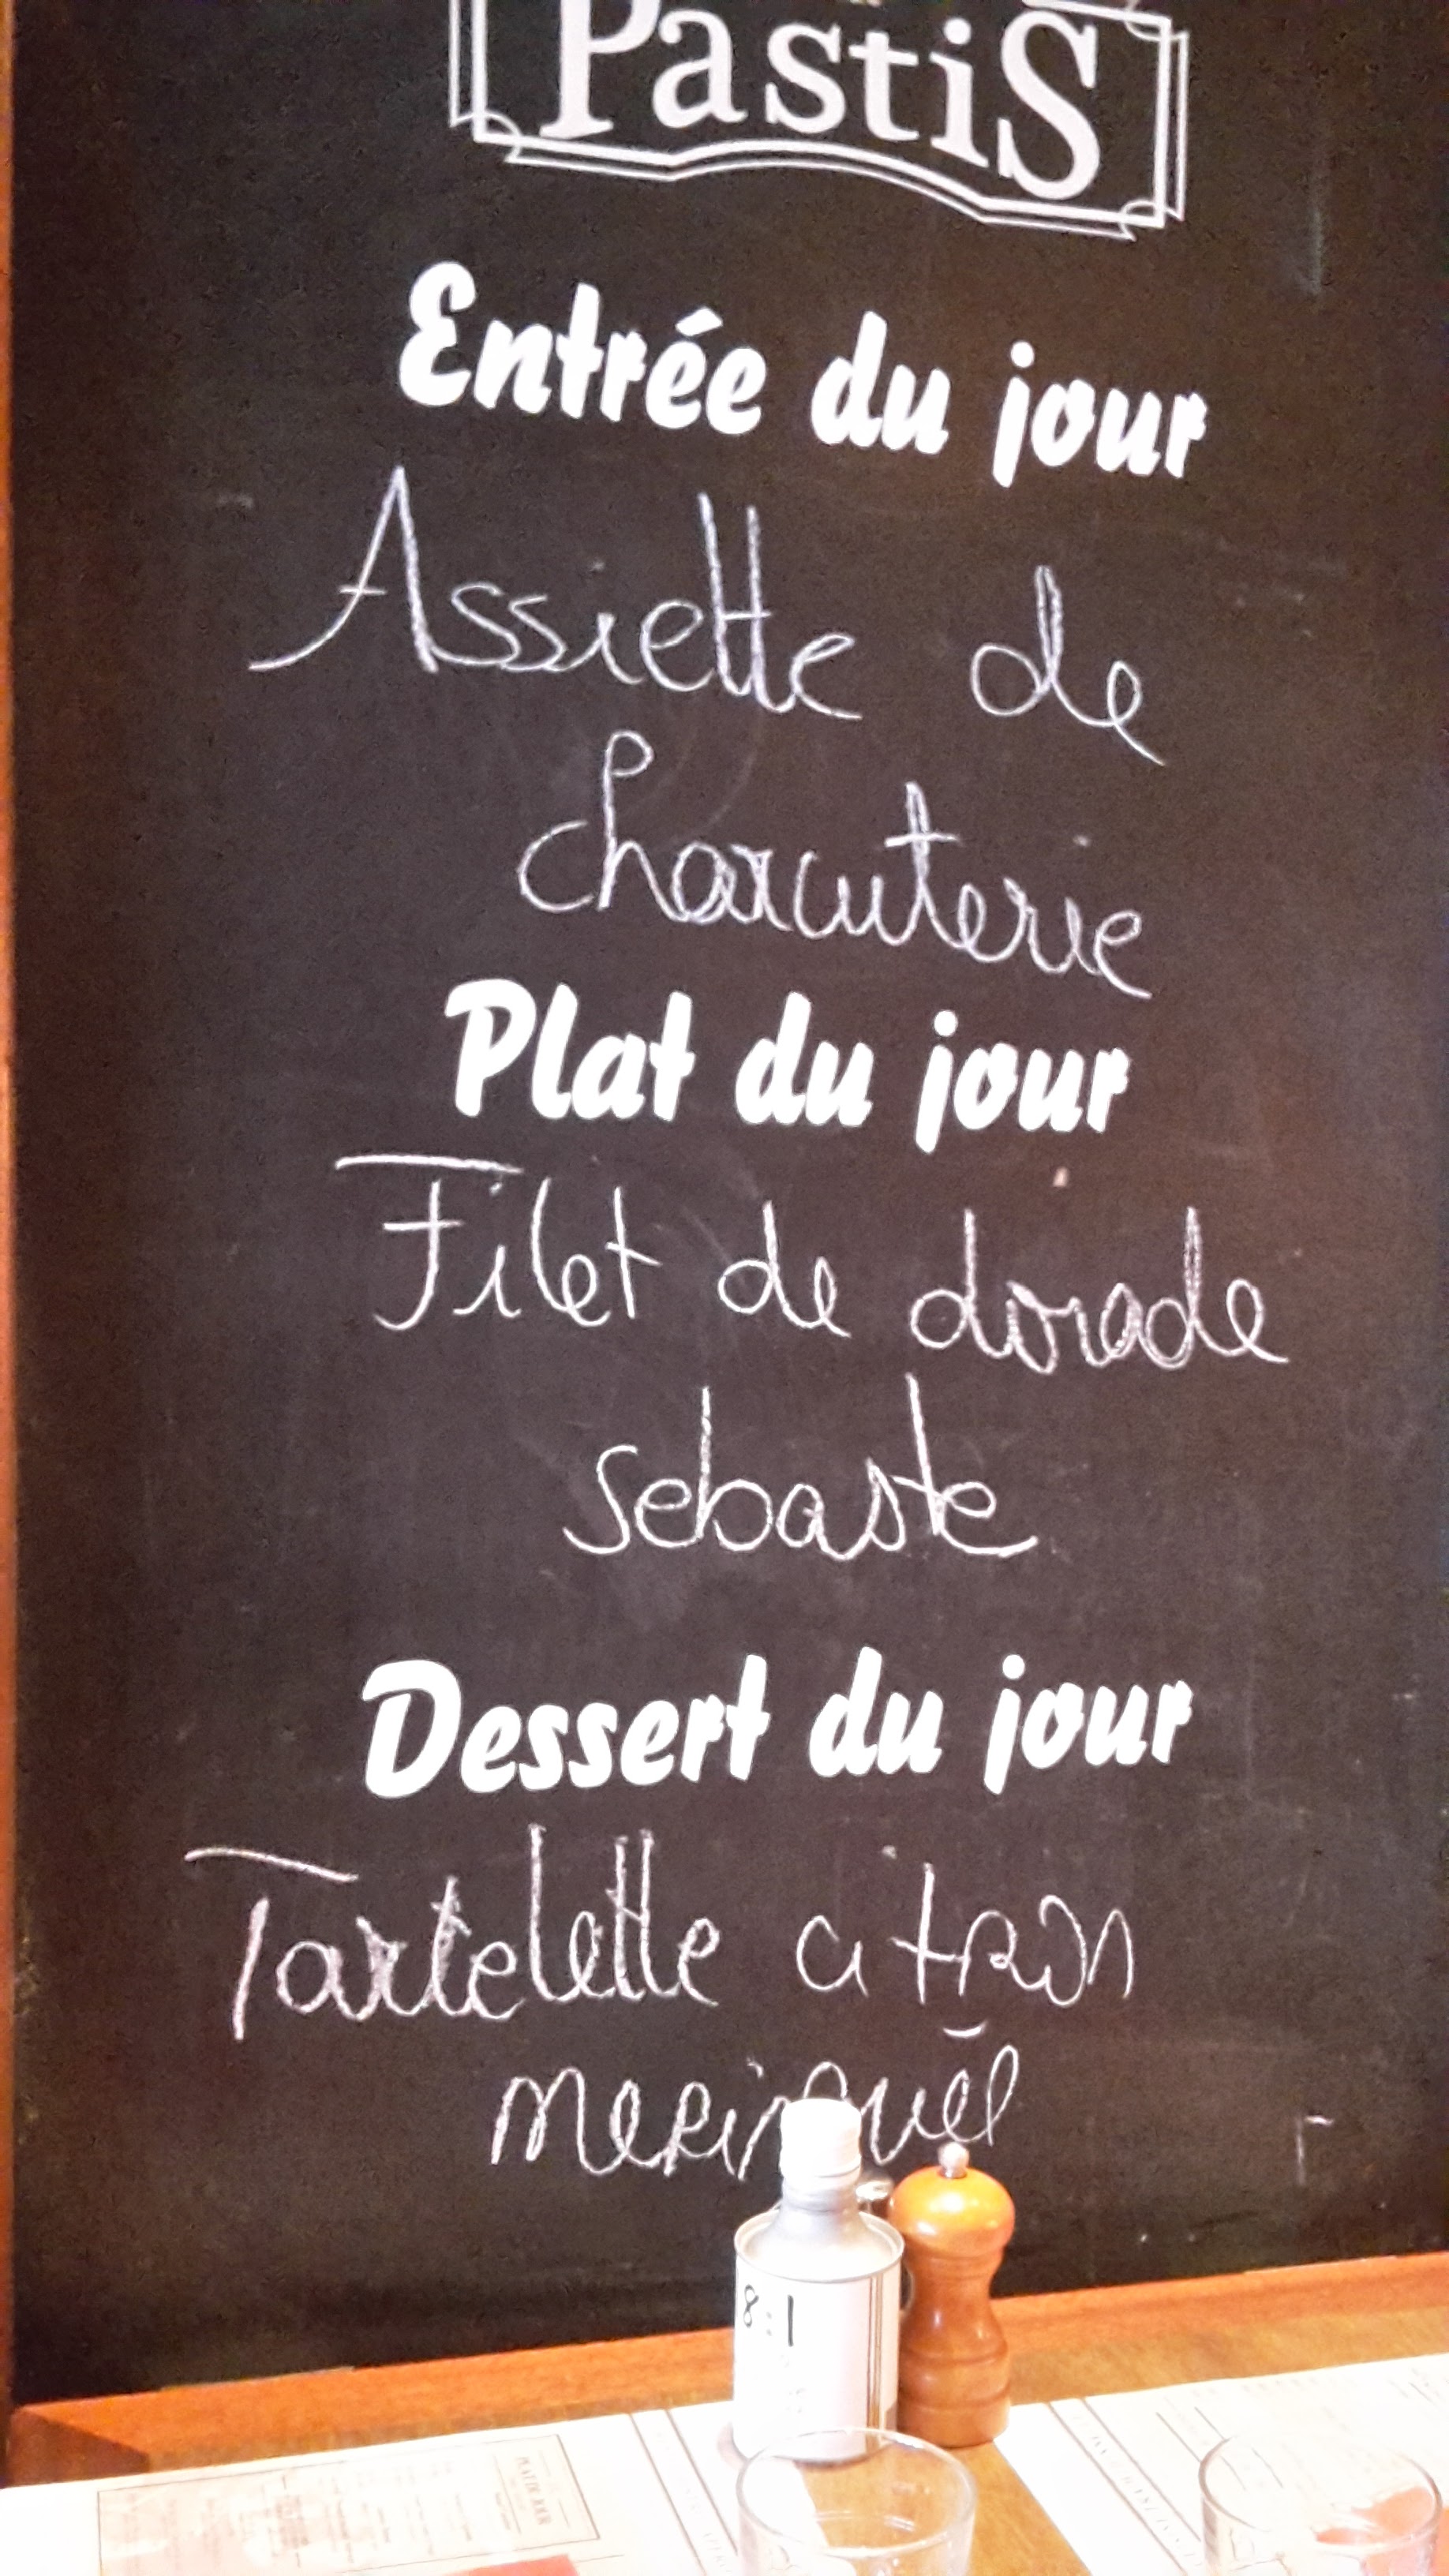 PastiS
Entrée du jour
Assiette de
charcuterie
Plat du jour
Filet de dorade
sebaste
Dessert du jour
Tartelette citron
8:1
PLAT DU JOUR